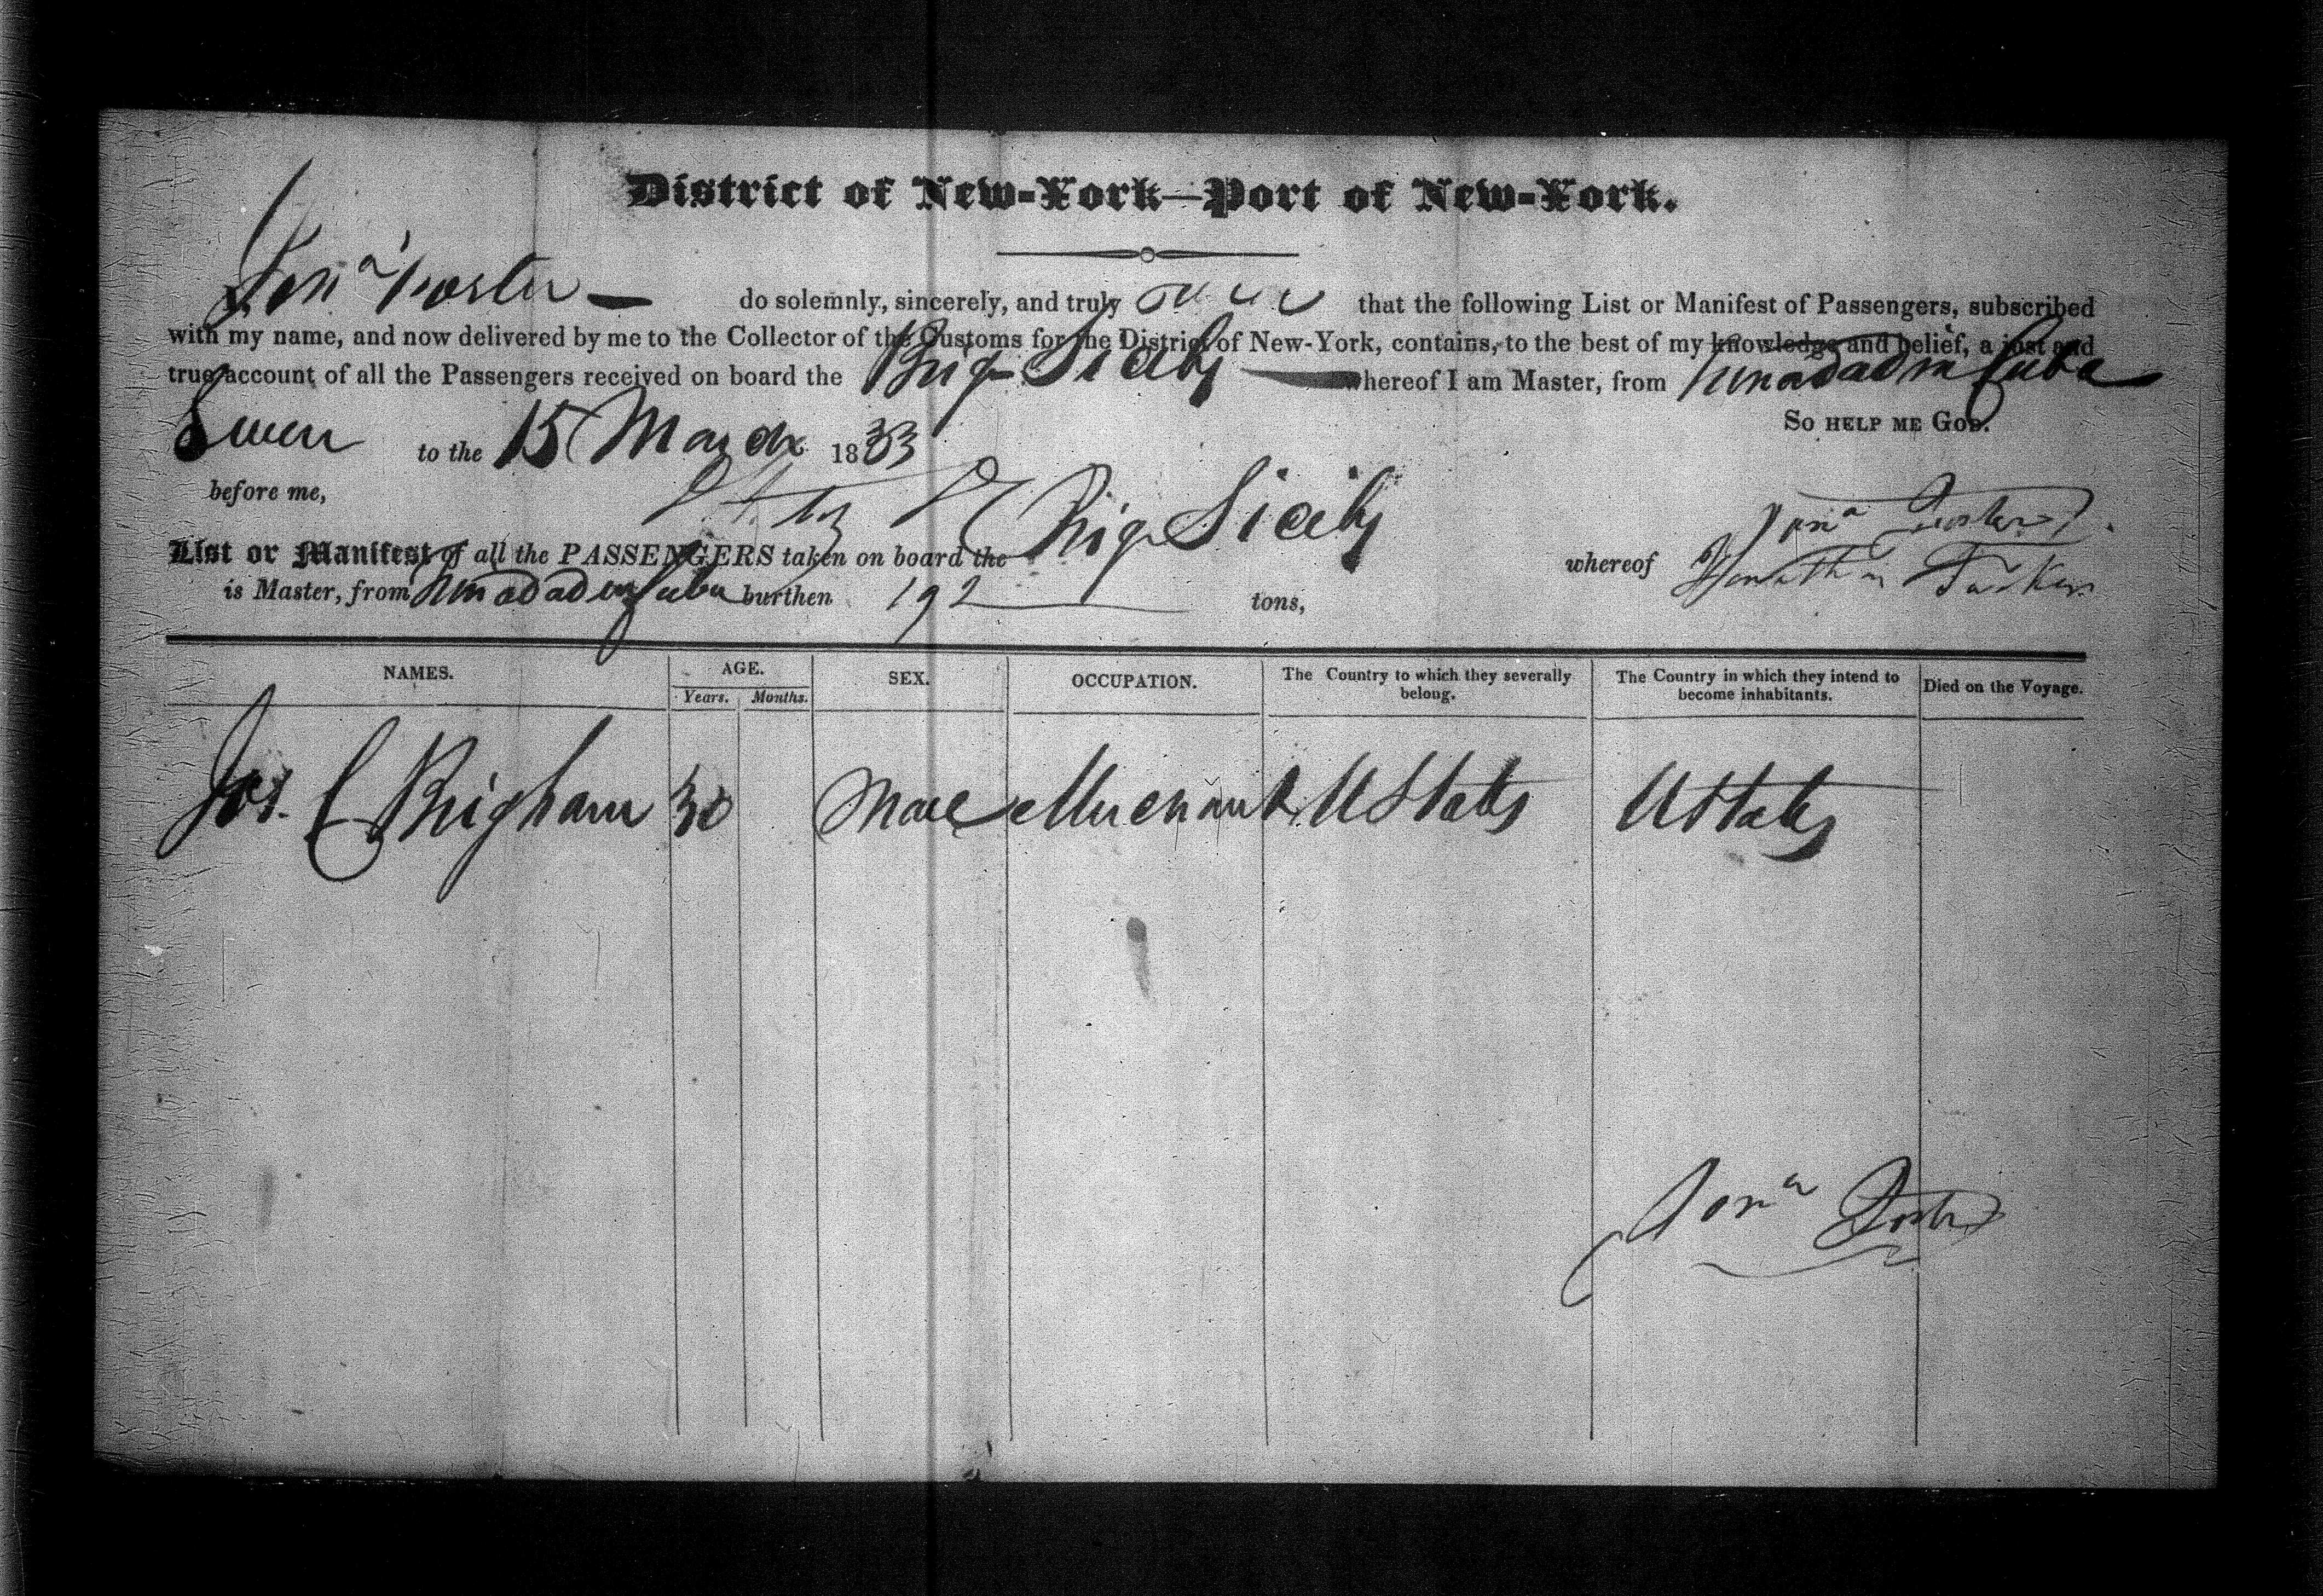 District of New-York—Port of New-York.
Jonª Foster — do solemnly, sincerely, and truly that the following List or Manifest of Passengers, subscribed
with my name, and now delivered by me to the Collector of the Customs for the District of New-York, contains, to the best of my knowledge and belief, a just and
true account of all the Passengers received on board the Brig Sicily whereof I am Master, from Trinadad in Cuba
So HELP ME GOD.
Sworn to the 15 March 1833
before me, Jonª Foster
List or Manifest of all the PASSENGERS taken on board the Brig Sicily whereof Jonathan
is Master, from Trinadad in Cuba burthen 192 tons,
NAMES. AGE. SEX. OCCUPATION. The Country to which they severally belong. The Country in which they intend to become inhabitants. Died on the Voyage.
Years. Months.
Jos. C Brigham 30 Male Merchant U States U States
Jonª Foster